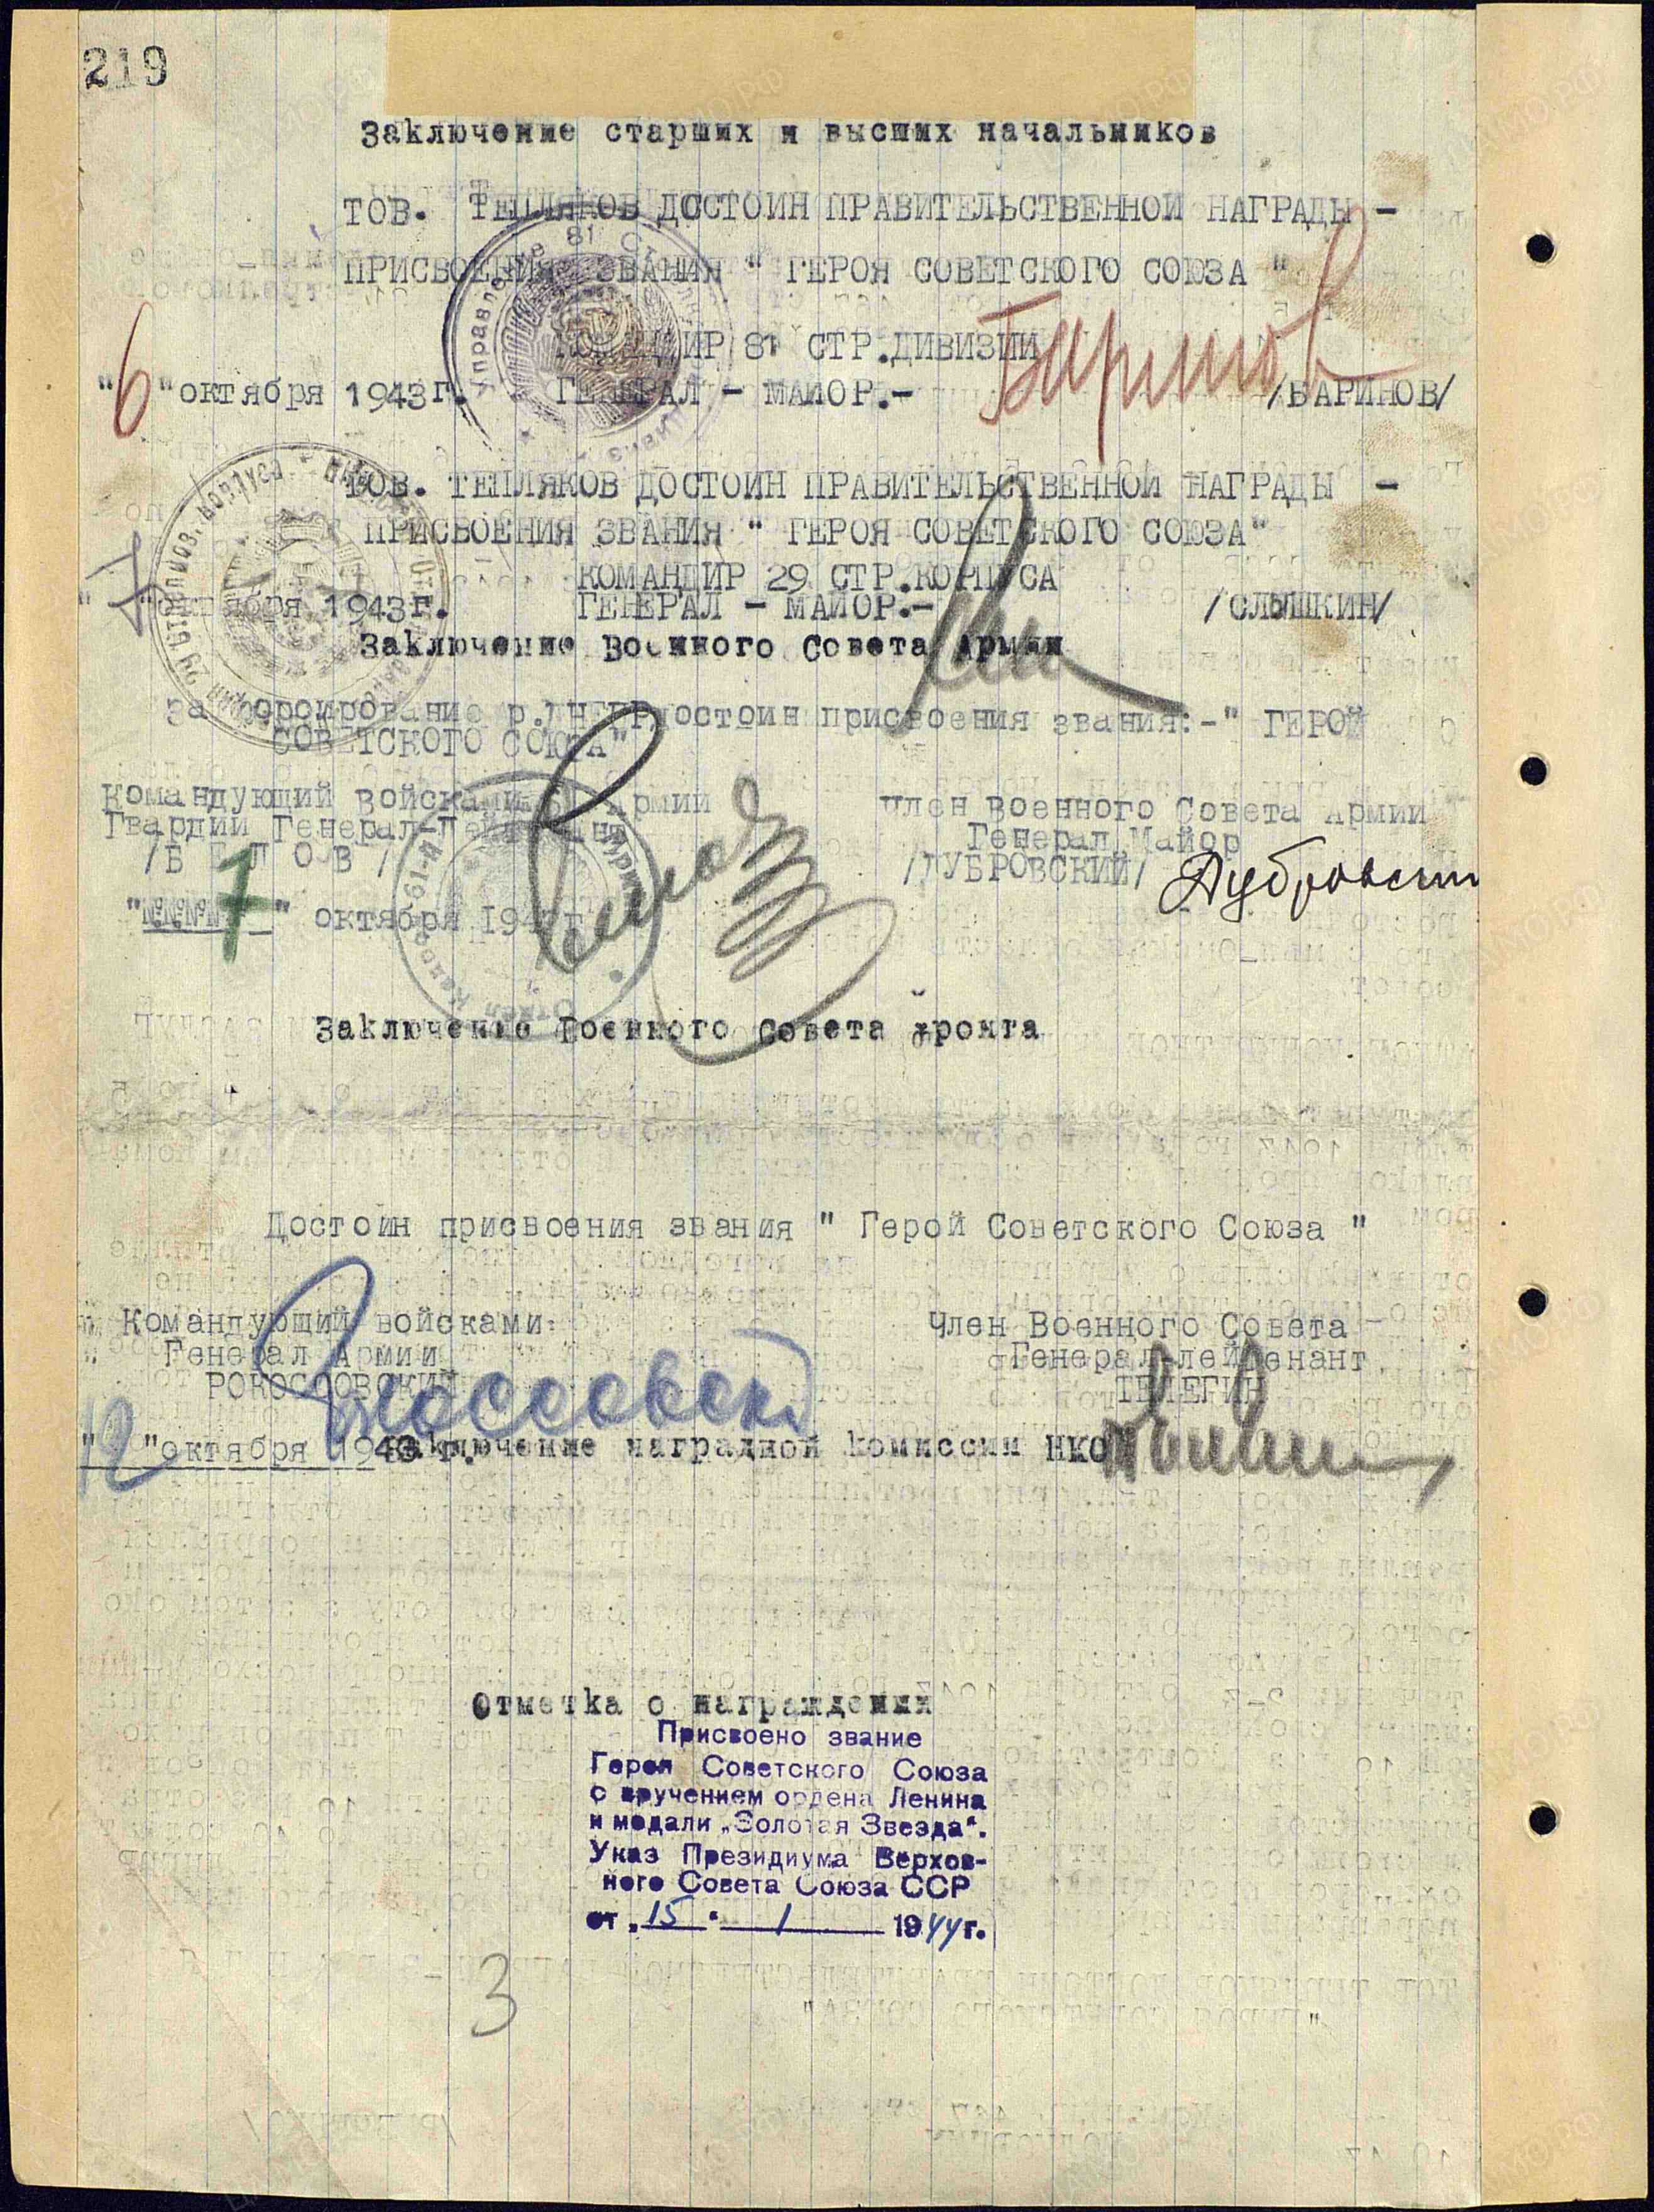 219
Заключение старших и высших начальников
ТОВ. ТЕПЛЯКОВ ДОСТОИН ПРАВИТЕЛЬСТВЕННОЙ НАГРАДЫ -
ПРИСВОЕНИЯ ЗВАНИЯ " ГЕРОЯ СОВЕТСКОГО СОЮЗА "
КОМАНДИР 81 СТР.ДИВИЗИИ
"6"октября 1943г. ГЕНЕРАЛ - МАЙОР.- /БАРИНОВ/
Баринов
ТОВ. ТЕПЛЯКОВ ДОСТОИН ПРАВИТЕЛЬСТВЕННОЙ НАГРАДЫ -
ПРИСВОЕНИЯ ЗВАНИЯ " ГЕРОЯ СОВЕТСКОГО СОЮЗА"
КОМАНДИР 29 СТР.КОРПУСА
"7"октября 1943г. ГЕНЕРАЛ - МАЙОР.- /СЛЫШКИН/
Заключение Военного Совета Армии
За форсирование р.ДНЕПР достоин присвоения звания:-" ГЕРОЙ
СОВЕТСКОГО СОЮЗА"
Командующий войсками 61 Армии Член Военного Совета Армии
Гвардии Генерал-Лейтенант Генерал Майор
/Б Е Л О В/ /ДУБРОВСКИЙ/ Дубровский
"7" октября 1943 г
Заключение Военного Совета фронта
Достоин присвоения звания " Герой Советского Союза "
Командующий войсками Член Военного Совета
Генерал Армии Генерал-лейтенант
РОКОССОВСКИЙ ТЕЛЕГИН
"12"октября 1943 г. Заключение наградной комиссии НКО
Отметка о награждении
Присвоено звание
Героя Советского Союза
с вручением ордена Ленина
и медали „Золотая Звезда".
Указ Президиума Верхов-
ного Совета Союза ССР
от „15" 1 1944г.
3